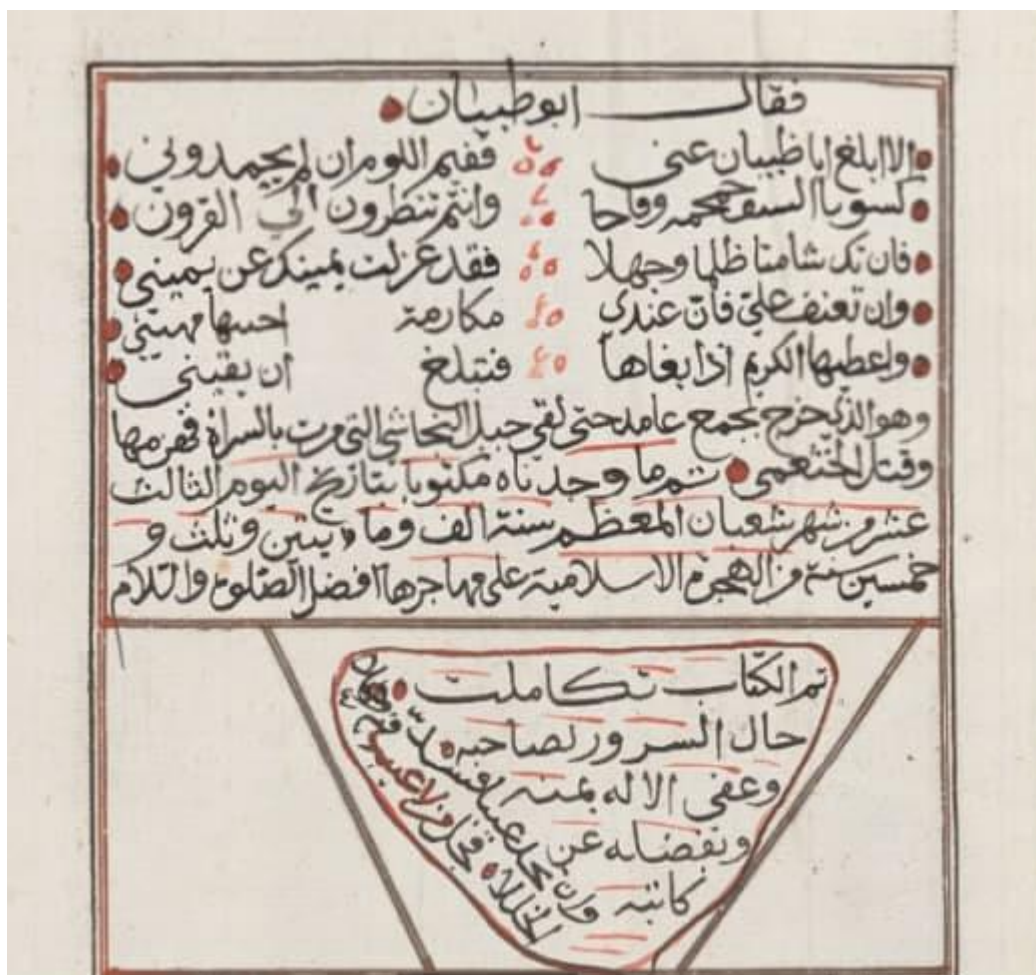 فقال ابو ظبيان
الا ابلغ ابا ظبيان عني ففيم اللوم ان لم يحمدوني
كسوبا السيف جمجمه وقاحا وانتم تنظرون الي القرون
فان تك شامتا ظلما وجهلا فقد عزلت يمينك عن يميني
وان تعنف علي فان عندي مكارمة احبها مهيني
واعطيها الكريم اذا بغاها فتبلغ ان يقيني
وهو الذي خرج بجمع غامد حتى لقي حبل النجاشي التي مرت بالسراة فهزمها
وقتل الخثعمي تم ما وجدناه مكتوبا بتاريخ اليوم الثالث
عشر من شهر شعبان المعظم سنة الف ومائيتين وثلث و
خمسين سنة من الهجرة الاسلامية على مهاجرها افضل الصلوة والسلام
تم الكتاب تكاملت
حال السرور لصاحبه
وعفى الاله بمنه
وبفضله عن
كاتبه
وان تجد عيبا فسد
الخللا فجل من لا عيب فيه وعلا